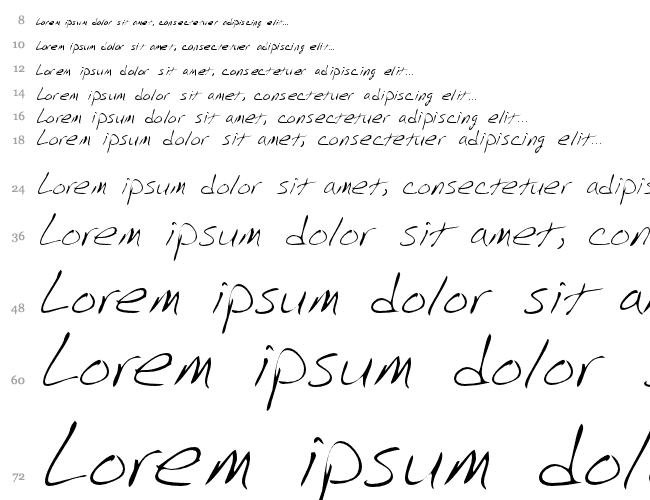 8 Lorem ipsum dolor sit amet, consectetuer adipiscing elit...
10 Lorem ipsum dolor sit amet, consectetuer adipiscing elit...
12 Lorem ipsum dolor sit amet, consectetuer adipiscing elit...
14 Lorem ipsum dolor sit amet, consectetuer adipiscing elit...
16 Lorem ipsum dolor sit amet, consectetuer adipiscing elit...
18 Lorem ipsum dolor sit amet, consectetuer adipiscing elit...
24 Lorem ipsum dolor sit amet, consectetuer adipis
36 Lorem ipsum dolor sit amet, con
48 Lorem ipsum dolor sit a
60 Lorem ipsum dolor
72 Lorem ipsum dol